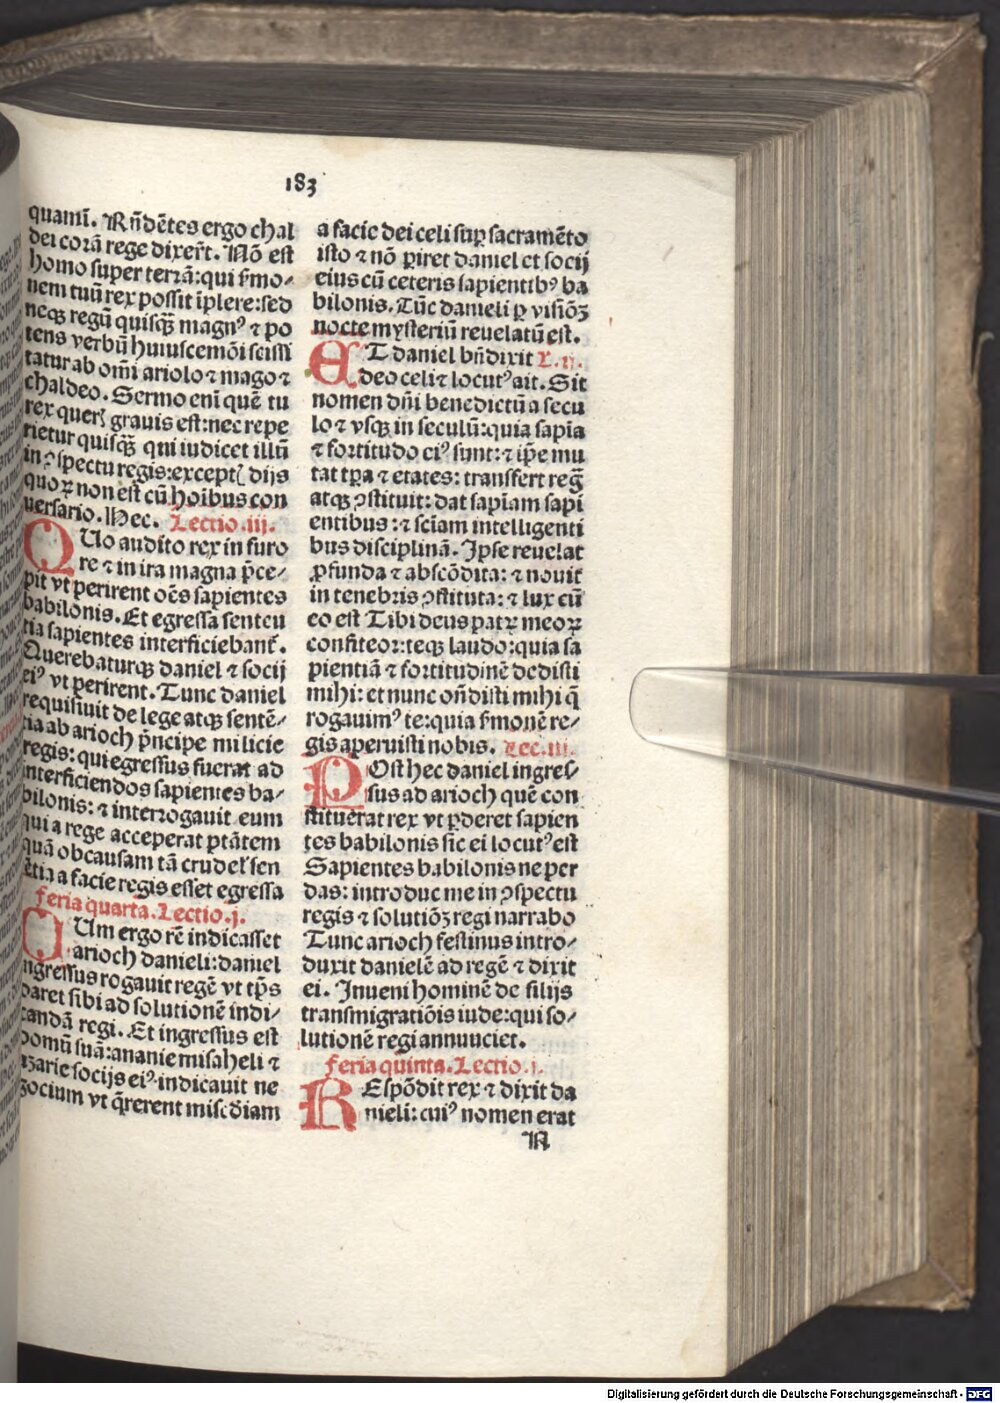 183
quamī. Rn̄dētes ergo chal
dei corā rege dixer̄t. Nō est
homo super terrā: qui s̄mo⸗
nem tuū rex possit īplere: sed
neqꝫ regū quisqꝫ̄ magnꝰ ⁊ po
tens verbū huiuscemōi scissi
tatur ab om̄i ariolo ⁊ mago ⁊
chaldeo. Sermo enī quē tu
rex querꝭ grauis est: nec repe
rietur quisqꝫ̄ qui iudicet illū
in ꝯspectu regis: exceptꝭ dijs
quoꝝ non est cū hoībus con
uersatio. Hec. Lectio.iij.
QUo audito rex in furo
re ⁊ in ira magna p̄ce⸗
pit vt perirent oēs sapientes
babilonis. Et egressa sentēn
tia sapientes interficiebant̄.
Querebaturqꝫ daniel ⁊ socij
eiꝰ vt perirent. Tunc daniel
requisiuit de lege atqꝫ sentē⸗
tia ab arioch p̄ncipe milicie
regis: qui egressus fuerat ad
interficiendos sapientes ba⸗
bilonis: ⁊ interrogauit eum
qui a rege acceperat ptātem
quā ob causam tā crudel' sen
tētia a facie regis esset egressa
feria quarta. Lectio.j.
CUm ergo rē indicasset
arioch danieli: daniel
ingressus rogauit regē vt tp̄s
daret sibi ad solutionē indi⸗
candā regi. Et ingressus est
domū suā: ananie misaheli ⁊
azarie socijs eiꝰ indicauit ne
gocium vt q̄rerent miscdiam
a facie dei celi suꝑ sacramēto
isto ⁊ nō ꝑiret daniel et socij
eius cū ceteris sapientibꝰ ba
bilonis. Tūc danieli ꝑ visiōꝫ
nocte mysteriū reuelatū est.
ET daniel bn̄dixit L.ij.
deo celi ⁊ locutꝰ ait. Sit
nomen dn̄i benedictū a secu
lo ⁊ vsqꝫ in seculū: quia sapia
⁊ fortitudo eiꝰ sunt: ⁊ ip̄e mu
tat tꝑa ⁊ etates: transfert reḡ
atqꝫ ꝯstituit: dat sapiam sapi
entibus: ⁊ sciam intelligenti
bus disciplinā. Ipse reuelat
ꝓfunda ⁊ abscōdita: ⁊ nouit
in tenebris ꝯstituta: ⁊ lux cū
eo est Tibi deus patꝝ meoꝝ
confiteor: teqꝫ laudo: quia sa
pientiā ⁊ fortitudinē dedisti
mihi: et nunc on̄disti mihi q̄
rogauimꝰ te: quia s̄monē re⸗
gis aperuisti nobis. Lec.iii.
POst hec daniel ingres⸗
sus ad arioch quē con
stituerat rex vt ꝑderet sapien
tes babilonis sic ei locutꝰ est
Sapientes babilonis ne per
das: introduc me in ꝯspectu
regis ⁊ solutiōꝫ regi narrabo
Tunc arioch festinus intro⸗
duxit danielē ad regē ⁊ dixit
ei. Inueni hominē de filijs
transmigratiōis iude: qui so⸗
lutionē regi annunciet.
feria quinta. Lectio.j.
REspōdit rex ⁊ dixit da
nieli: cuiꝰ nomen erat
A
Digitalisierung gefördert durch die Deutsche Forschungsgemeinschaft - DFG